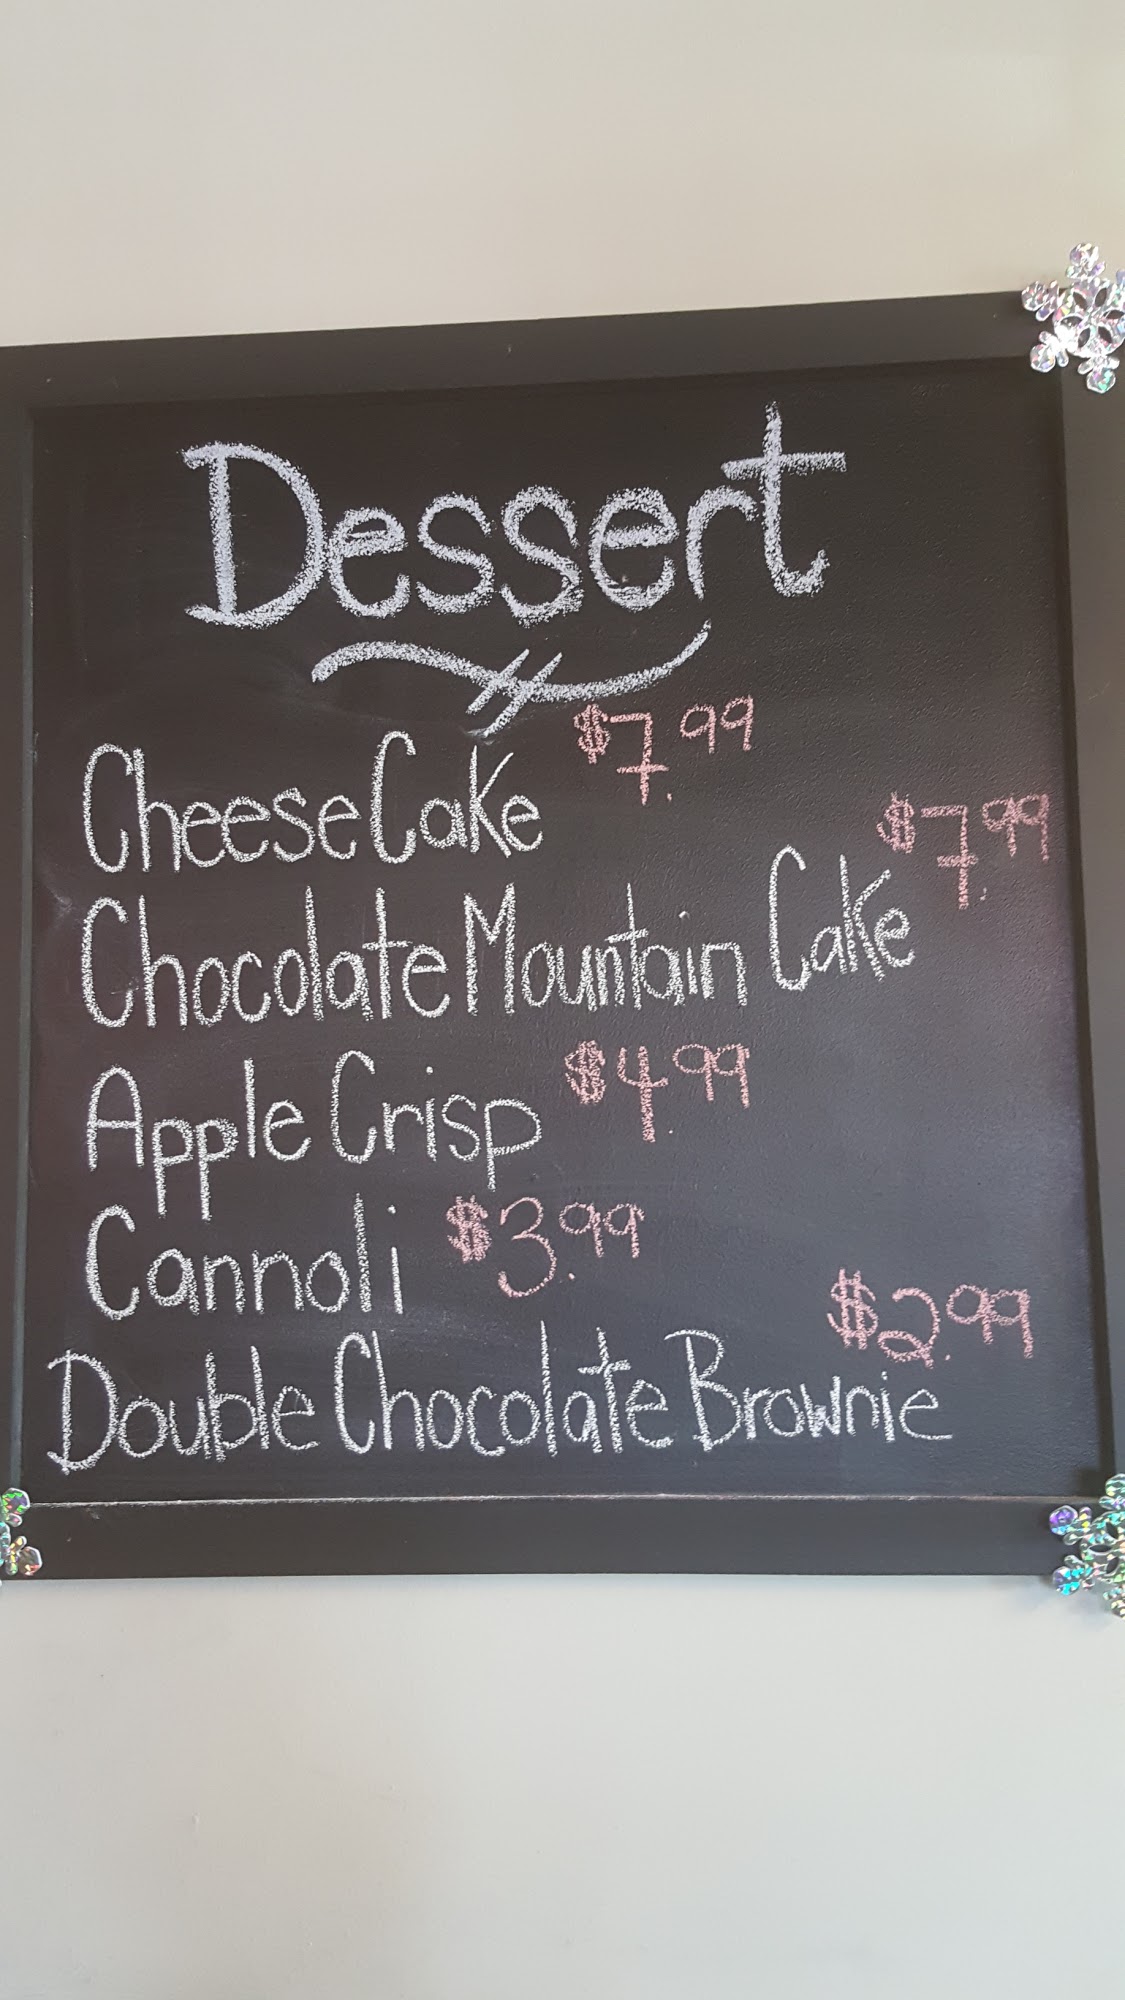 Dessert
CheeseCake $7.99
Chocolate Mountain Cake $7.99
Apple Crisp $4.99
Cannoli $3.99
Double Chocolate Brownie $2.99